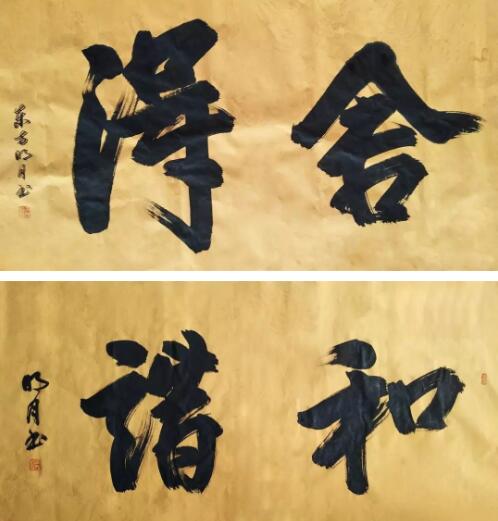 舍得
東方明月书
和谐
明月书